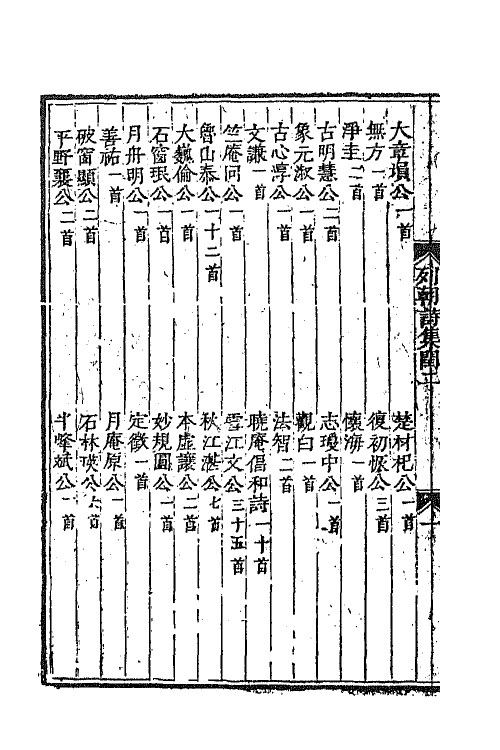 列朝詩集閏二
一
大章塤公一首
楚材杞公一首
無方一首
復初恢公三首
淨圭一首
懷澥一首
古明慧公二首
志瓊中公一首
象元淑公一首
觀白一首
古心淳公一首
法智二首
文謙一首
曉庵倡和詩一十首
竺庵同公一首
雪江文公三十五首
魯山泰公一十二首
秋江湛公七首
大巍倫公一首
本虛讓公二首
石窗珉公一首
妙規圓公一首
月舟明公一首
定徵一首
善祐一首
月庵原公一首
破窗顯公二首
石林瑛公六首
平野襄公二首
半峰斌公一首